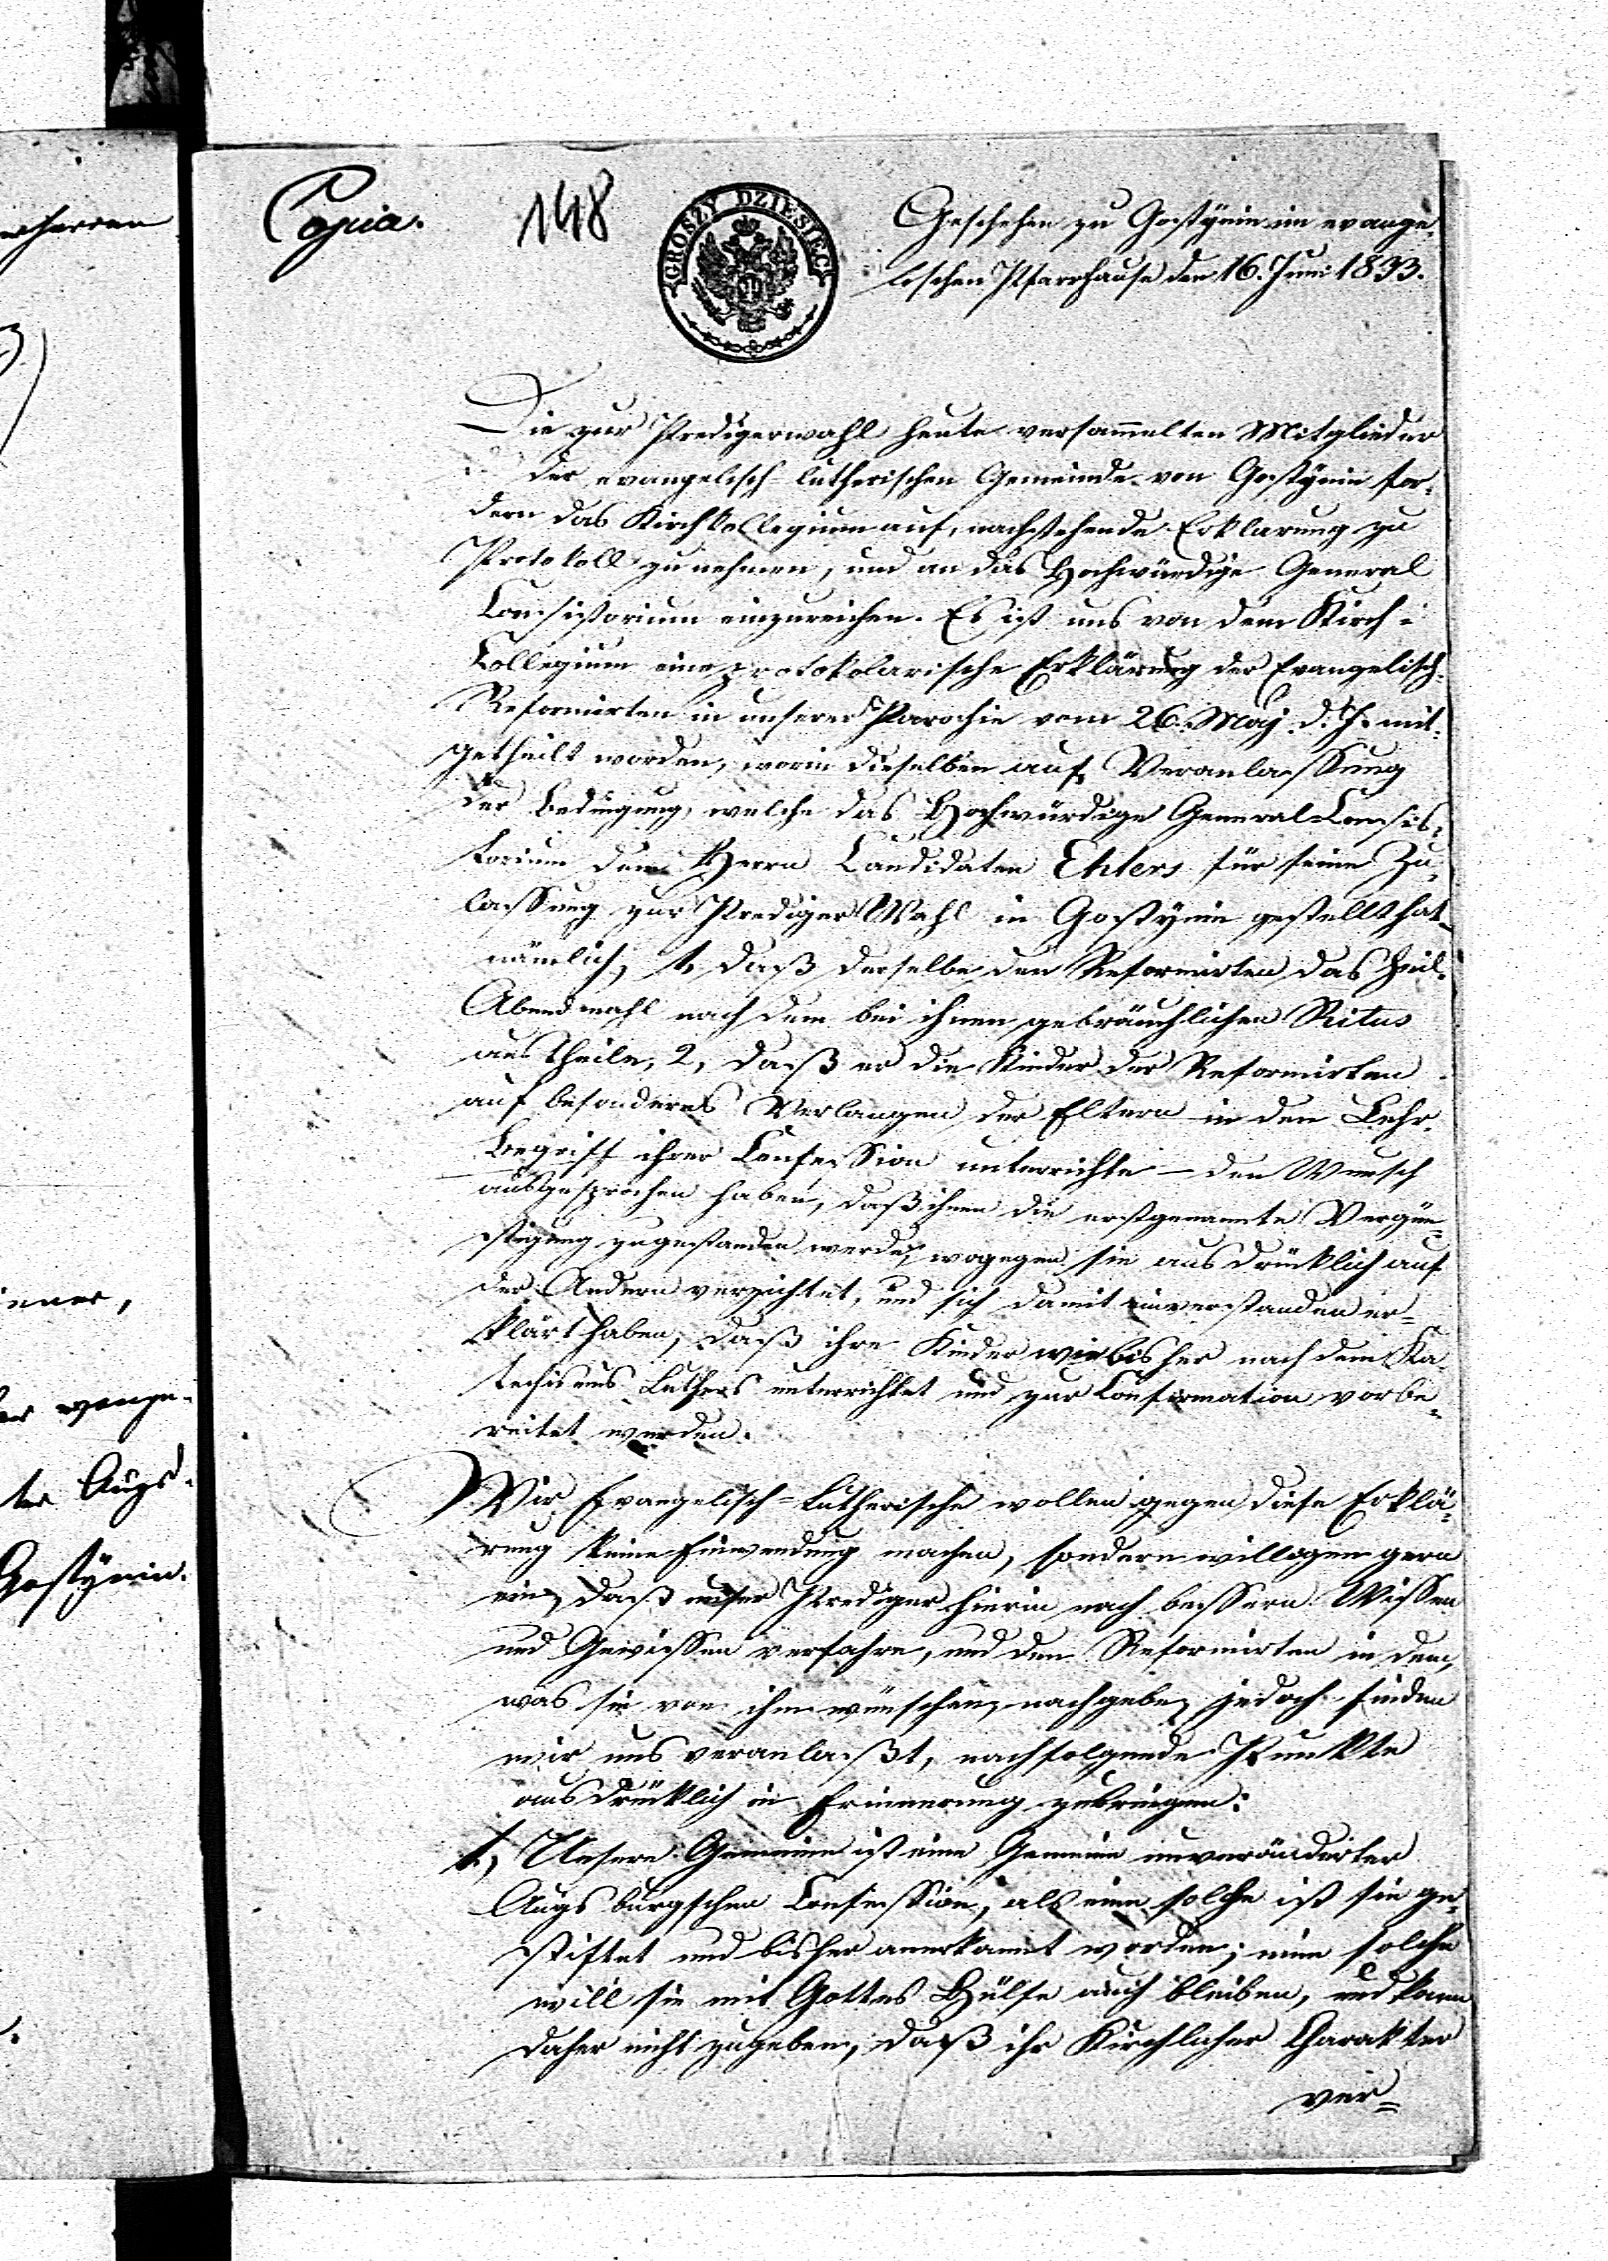 Copia.
148
GROSZY DZIESIĘĆ
Geschehen zu Gostÿnin im evange-
lischen Pfarrhause den 16. Juni 1833.
Die zur Predigerwahl heute versammelten Mitglieder
der evangelisch-lutherischen Gemeinde von Gostÿnin for-
dern das Kirchkollegium auf, nachstehende Erklarung zu
Protokoll zu nehmen, und an das Hochwürdige General
Consistorium einzureichen. Es ist uns von dem Kirch-
Collegium eine protokolarische Erklärung der Evangelisch-
Reformirten in unserer Parochie vom 26. Maj d. J. mit-
getheilt worden, worin dieselben auf Veranlassung
der Bedingung, welche das Hochwürdige General-Consis-
torium dem Herrn Candidaten Ehlers für seine Zu-
lassung zur Prediger Wahl in Gostÿnin gestellt hat,
nämlich, 1, daß derselbe den Reformirten das heil.
Abendmahl nach dem bei ihnen gebräuchlichen Ritus
austheile, 2, daß er die Kinder der Reformirten
auf besonderes Verlangen der Eltern in den Lehr-
Begriff ihrer Confession unterrichte – den Wunsch
ausgesprochen haben, daß ihnen die erstgenannte Vergün-
stigung zugestanden werde, wogegen sie ausdrücklich auf
der Andern verzichtet, und sich damit einverstanden er-
klärt haben, daß ihre Kinder wie bisher nach dem Ka-
techismus Luthers unterrichtet und zur Confirmation vorbe-
reitet werden.
Wir Evangelisch-Lutherische wollen gegen diese Erklä-
rung keine Einwendung machen, sondern willigen gern
ein, daß unser Prediger hierin nach bessern Wissen
und Gewissen verfahre, und den Reformirten in dem,
was sie von ihm wünschen, nachgebe, jedoch finden
wir uns veranlaßt, nachfolgende Punkte
ausdrücklich in Erinnerung zu bringen:
1, Unsere Gemeine ist eine Gemeine unveränderter
Augsburgschen Confession, als eine solche ist sie ge-
stiftet und bisher anerkannt worden; eine solche
will sie mit Gottes Hülfe auch bleiben, und kann
daher nicht zugeben, daß ihr Kirchlicher Charakter
ver-
Gostÿnin.